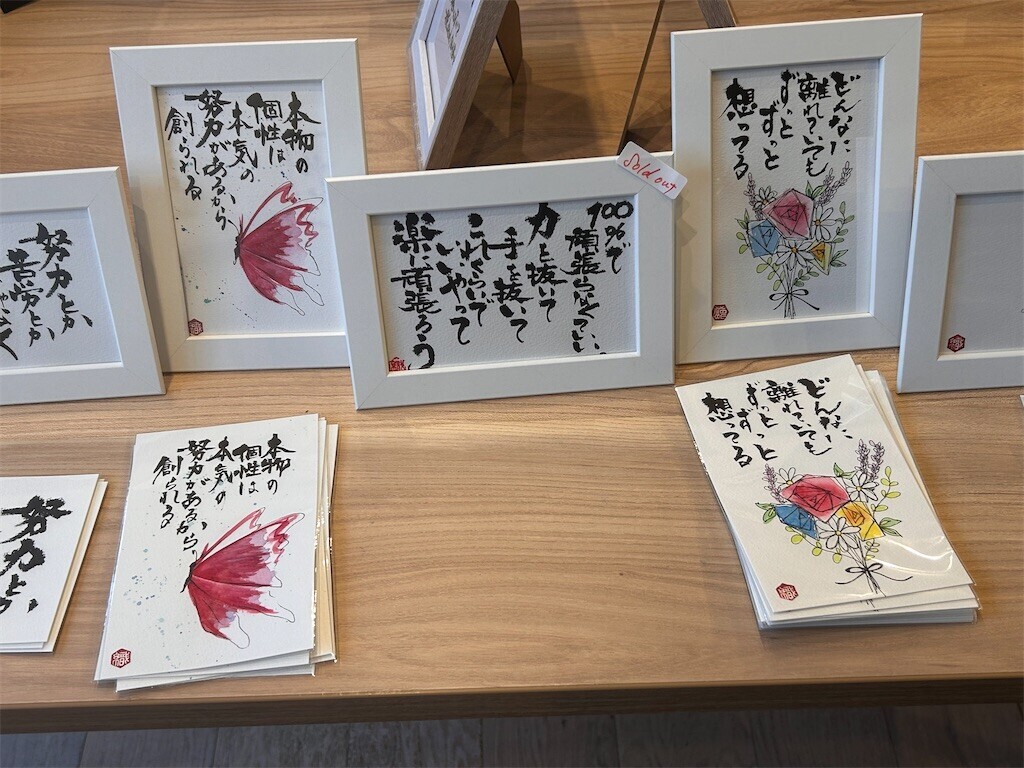 努力とか
苦労とか
本物の
個性は、
本気の
努力があるから
創られる
100%で
頑張らなくていい。
力を抜いて
手を抜いて
これくらいで
いいやって
楽に頑張ろう
Sold out
どんなに
離れていても
ずっと
ずっと
想ってる
努力とか
本物の
個性は、
本気の
努力があるから、
創られる
どんなに
離れていても
ずっと
ずっと
想ってる